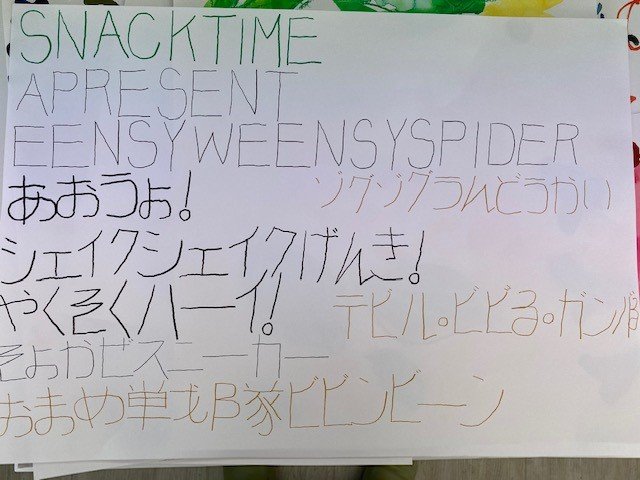 SNACKTIME
APRESENT
EENSYWEENSYSPIDER
あおうぉ!
ゾグゾグうんどうかい
シェイクシェイクげんき!
やくそくハーイ!
デビル。ビビる。ガン
そよかぜスニーカー
おまめ戦隊ビビンビーン